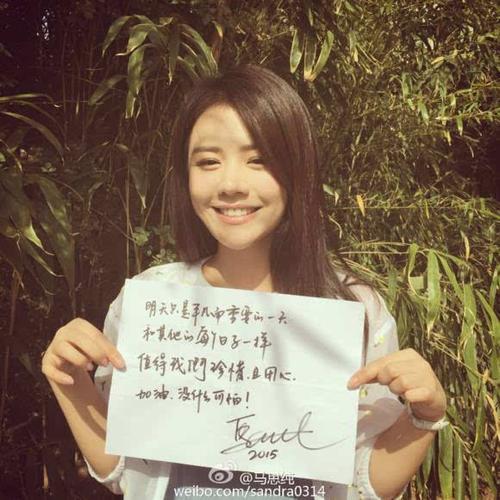 明天只是平凡而重要的一天
和其他的每个日子一样
值得我們珍惜.且用心.
加油.没什么可怕!
2015
@马思纯
weibo.com/sandra0314